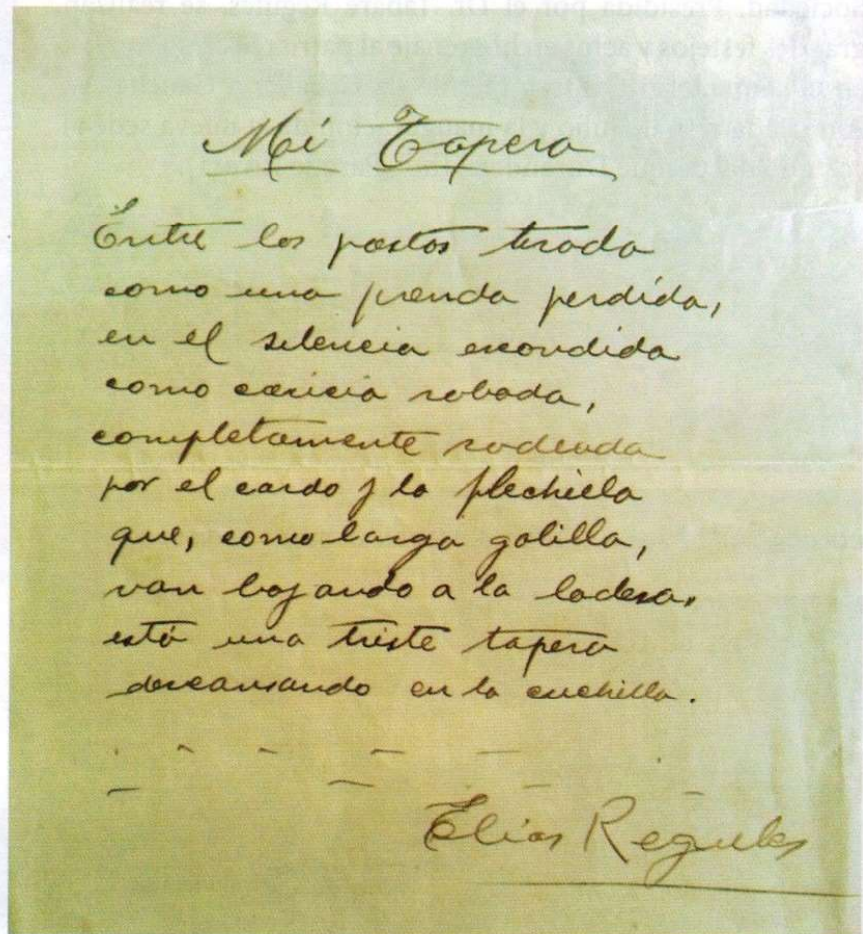 Mi Tapera
Entre los pastos tirada
como una prenda perdida,
en el silencio escondida
como caricia robada,
completamente rodeada
por el cardo y la flechilla
que, como larga golilla,
van bajando a la ladera,
está una triste tapera
descansando en la cuchilla.
Elías Regules